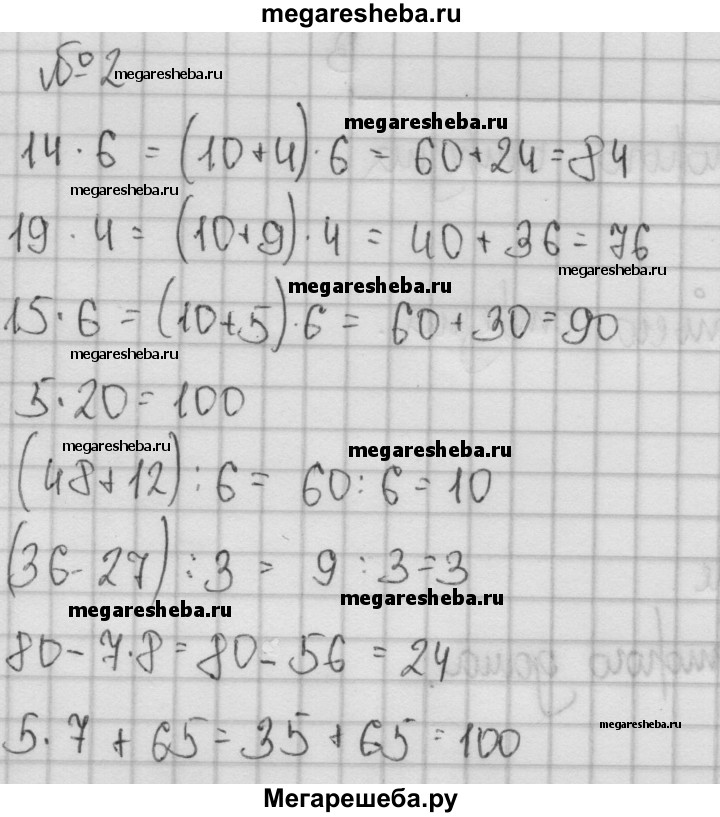 megaresheba.ru
№ 2 megaresheba.ru
megaresheba.ru
14 · 6 = (10+4) · 6 = 60+24 = 84
megaresheba.ru
19 · 4 = (10+9) · 4 = 40 + 36 = 76
megaresheba.ru
megaresheba.ru
15 · 6 = (10+5) · 6 = 60 + 30 = 90
megaresheba.ru
5 · 20 = 100
megaresheba.ru megaresheba.ru
(48+12) : 6 = 60 : 6 = 10
(36-27) : 3 = 9 : 3 = 3
megaresheba.ru megaresheba.ru
80 - 7·8 = 80 - 56 = 24
megaresheba.ru
5 · 7 + 65 = 35 + 65 = 100
Мегарешеба.ру